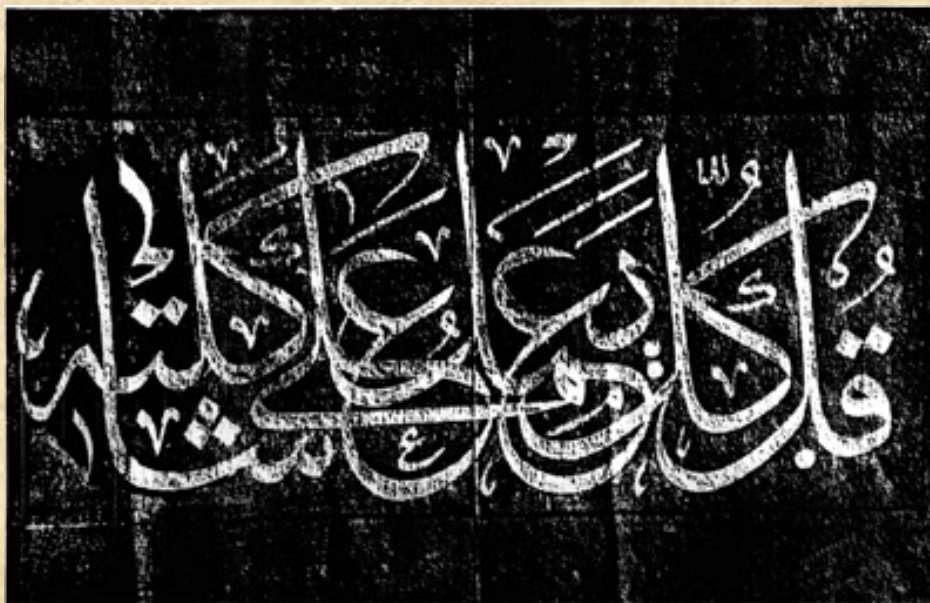 قُلْ كُلٌّ يَعْمَلُ عَلَىٰ شَاكِلَتِهِ